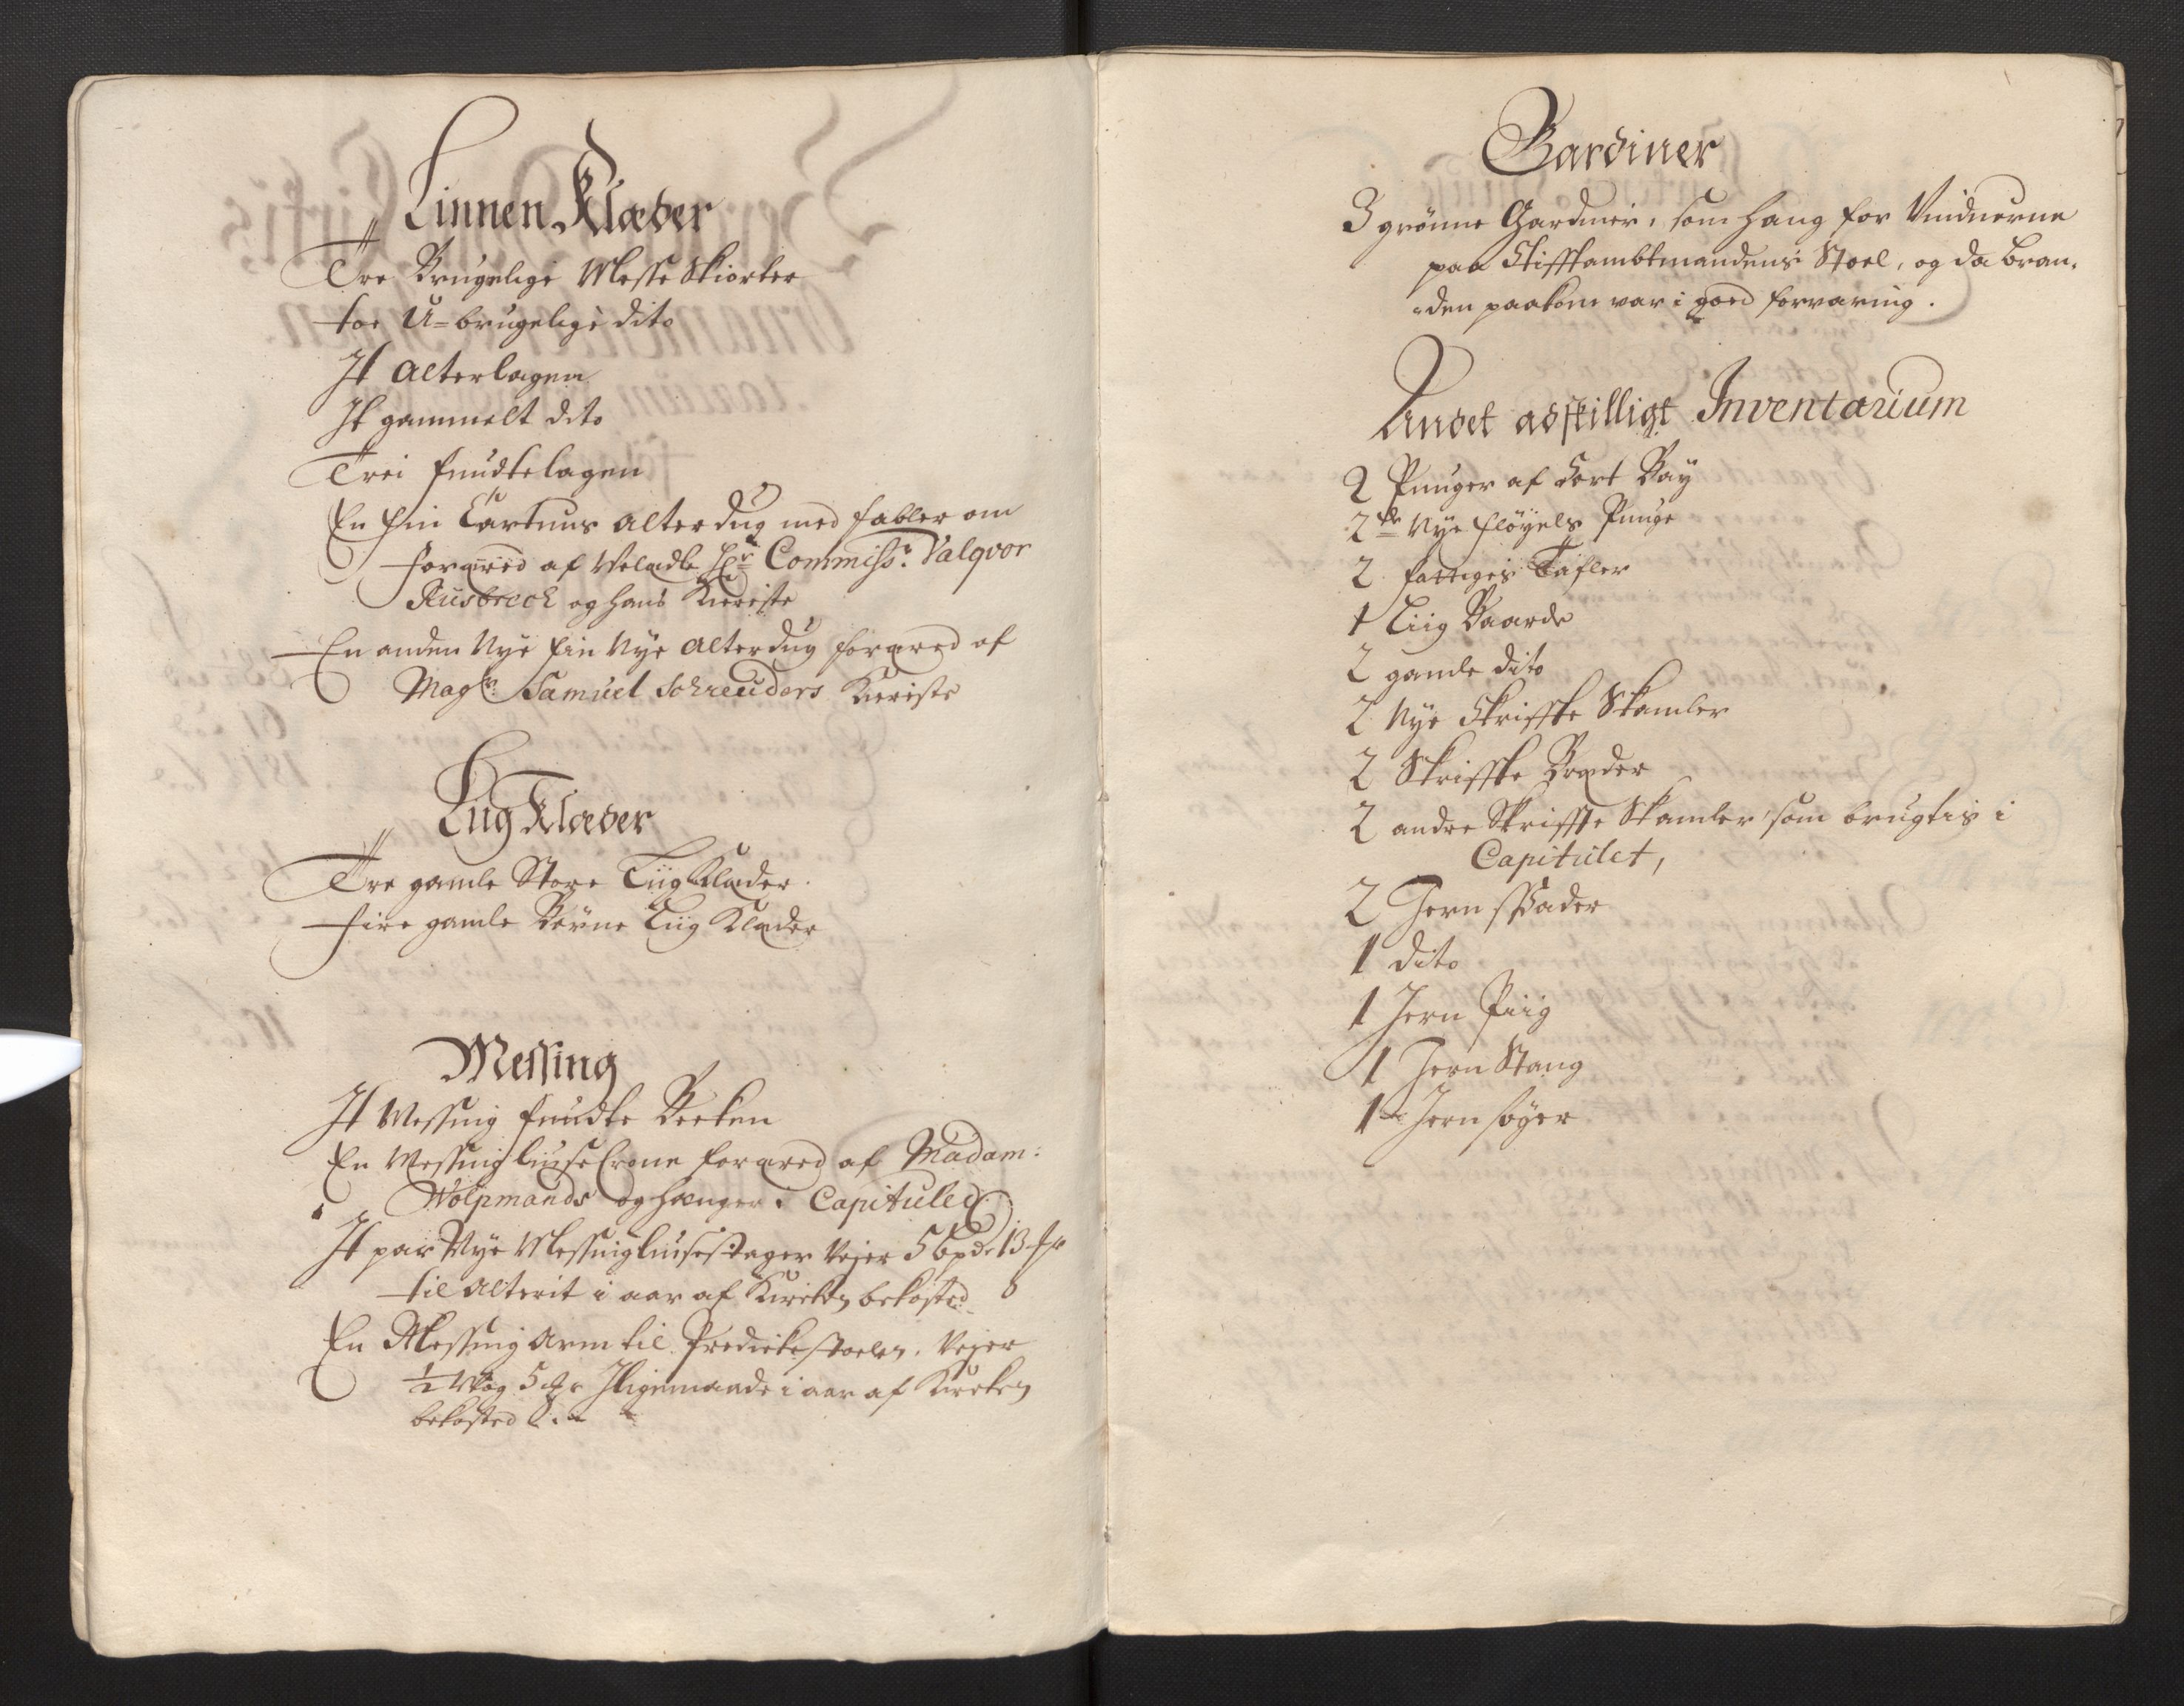 Linnen Klæder
Tre Brugelige Messe Skiorter
toe U=brugelige dito
It Alterlagen
It gammelt dito
Trei funtelagen
En fin Cartuns Alter dug med fabler om
foræred af Velædle Hr Commissr: Valqvor
Rusbrech og hans Kieriste
En anden Nye fin Nye Alterdug foræred af
Magr: Samuel Schreuders Kieriste
Liig Klæder
Tre gamle Store Liig Klæder
fire gamle Børne Liig Klæder
Messing
It Messing funte Becken
En Messing liuse Crone foræred af Madam:
Wolpmands og hænger i Capitulet
It par Nye Messing liusestager Vejer 5 bpd: 13
til Alterit i aar af Kircken bekosted
En Messing Arm til Predickestoelen, Vejer
1/2 Wog 5 Iligemaade i aar af Kircken
bekosted
Gardiner
3 grønne Gardiner, som hang for Vinduerne
paa Stifftambtmandens Stoel, og da bran,
den paakom var i goed forvaring.
Andet adskilligt Inventarium
2 Punger af Sort Bay
2de Nye fløyels Punge
2 fattiges Tafler
1 Liig Baarde
2 gamle dito
2 Nye Skriffte Skamler
2 Skriffte Bræder
2 andre Skriffte Skamler som brugtis i
Capitulet,
2 Jern Spader
1 dito
1 Jern Piig
1 Jern Stang
1 Jern